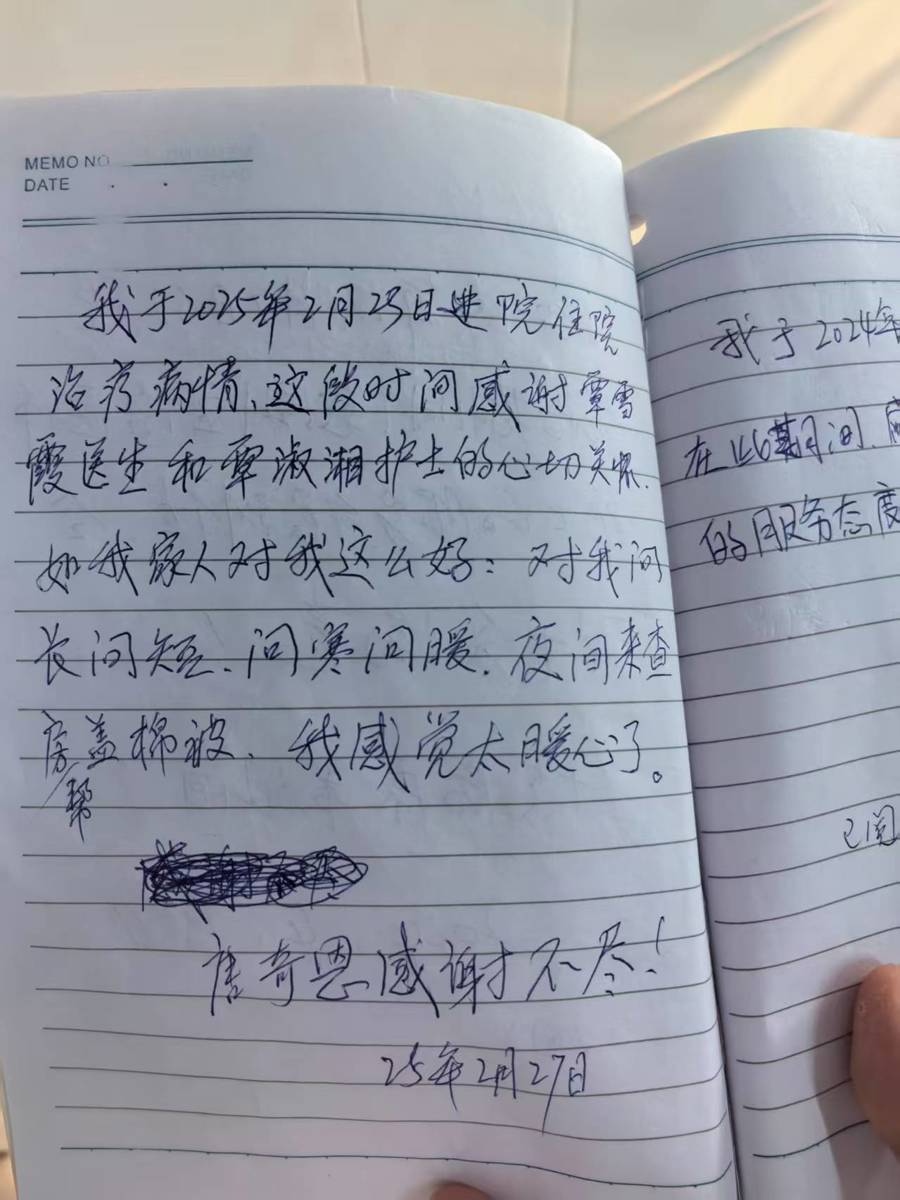 MEMO NO.
DATE
我于2025年2月23日进院住院
治疗病情、这段时间感谢覃雪
霞医生和覃淑湘护士的心切关怀、
如我家人对我这么好：对我问
长问短、问寒问暖、夜间来查
房帮盖棉被、我感觉太暖心了。
唐奇恩感谢不尽！
25年2月27日
我于2024年
在此期间、
的服务态度
已阅